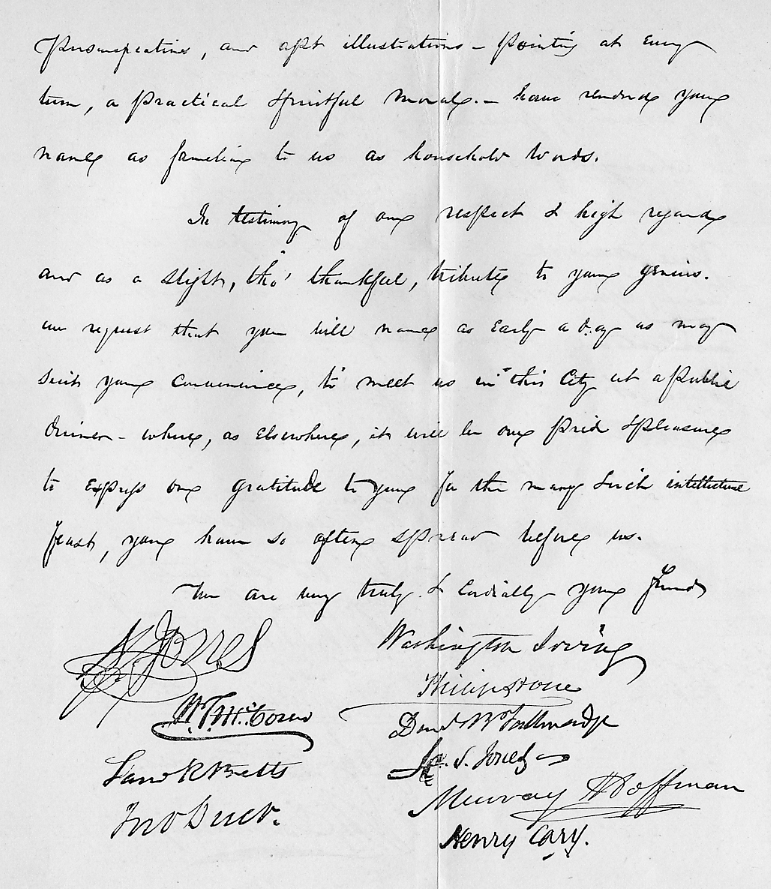 and apt illustrations – pointing at every
turn, a practical & fruitful moral. – have rendered your
name as familiar to us as household words.
In testimony of our respect & high regard
and as a slight, tho' thankful, tribute to your genius.
we request that you will name as early a day as may
suit your convenience, to meet us in this City at a public
dinner – where, as elsewhere, it will be our pride & pleasure
to express our gratitude to you for the many rich intellectual
feasts, you have so often spread before us.
We are very truly & cordially your friends
Jones
Washington Irving
Philip Hone
Saml R Betts
Jno Duer.
Murray Hoffman
Henry Cary.